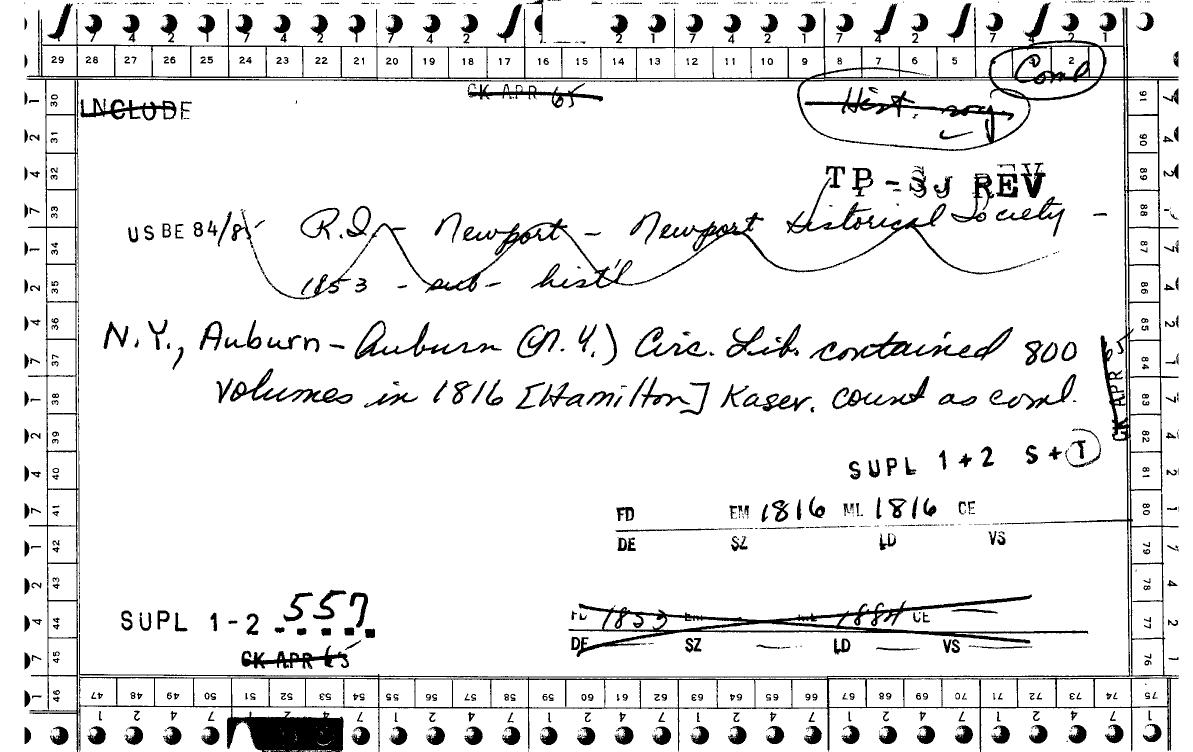 7 4 2 1 7 4 2 1 7 4 2 1 2 1 7 4 2 1 7 4 2 1
29 28 27 26 25 24 23 22 21 20 19 18 17 16 15 14 13 12 11 10 9 8 7 6 5 2
Coml
INCLUDE CK APR 65 Hist. soc.
TP - SJ REV
US BE 84/85 R.I. - Newport - Newport Historical Society -
1853 - sub - hist'l
N.Y., Auburn - Auburn (N.Y.) Circ. Lib. contained 800
volumes in 1816 [Hamilton] Kaser. count as coml.
CK APR
SUPL 1+2 S+T
FD EM 1816 ML 1816 CE
DE SZ LD VS
SUPL 1-2 557
FD 1853 EM ML 1884 CE
DE SZ LD VS
CK APR 65
30 31 32 33 34 35 36 37 38 39 40 41 42 43 44 45 46
91 90 89 88 87 86 85 84 83 82 81 80 79 78 77 76 75
47 48 49 50 51 52 53 54 55 56 57 58 59 60 61 62 63 64 65 66 67 68 69 70 71 72 73 74
1 2 4 7 1 2 4 7 1 2 4 7 1 2 4 7 1 2 4 7 1 2 4 7